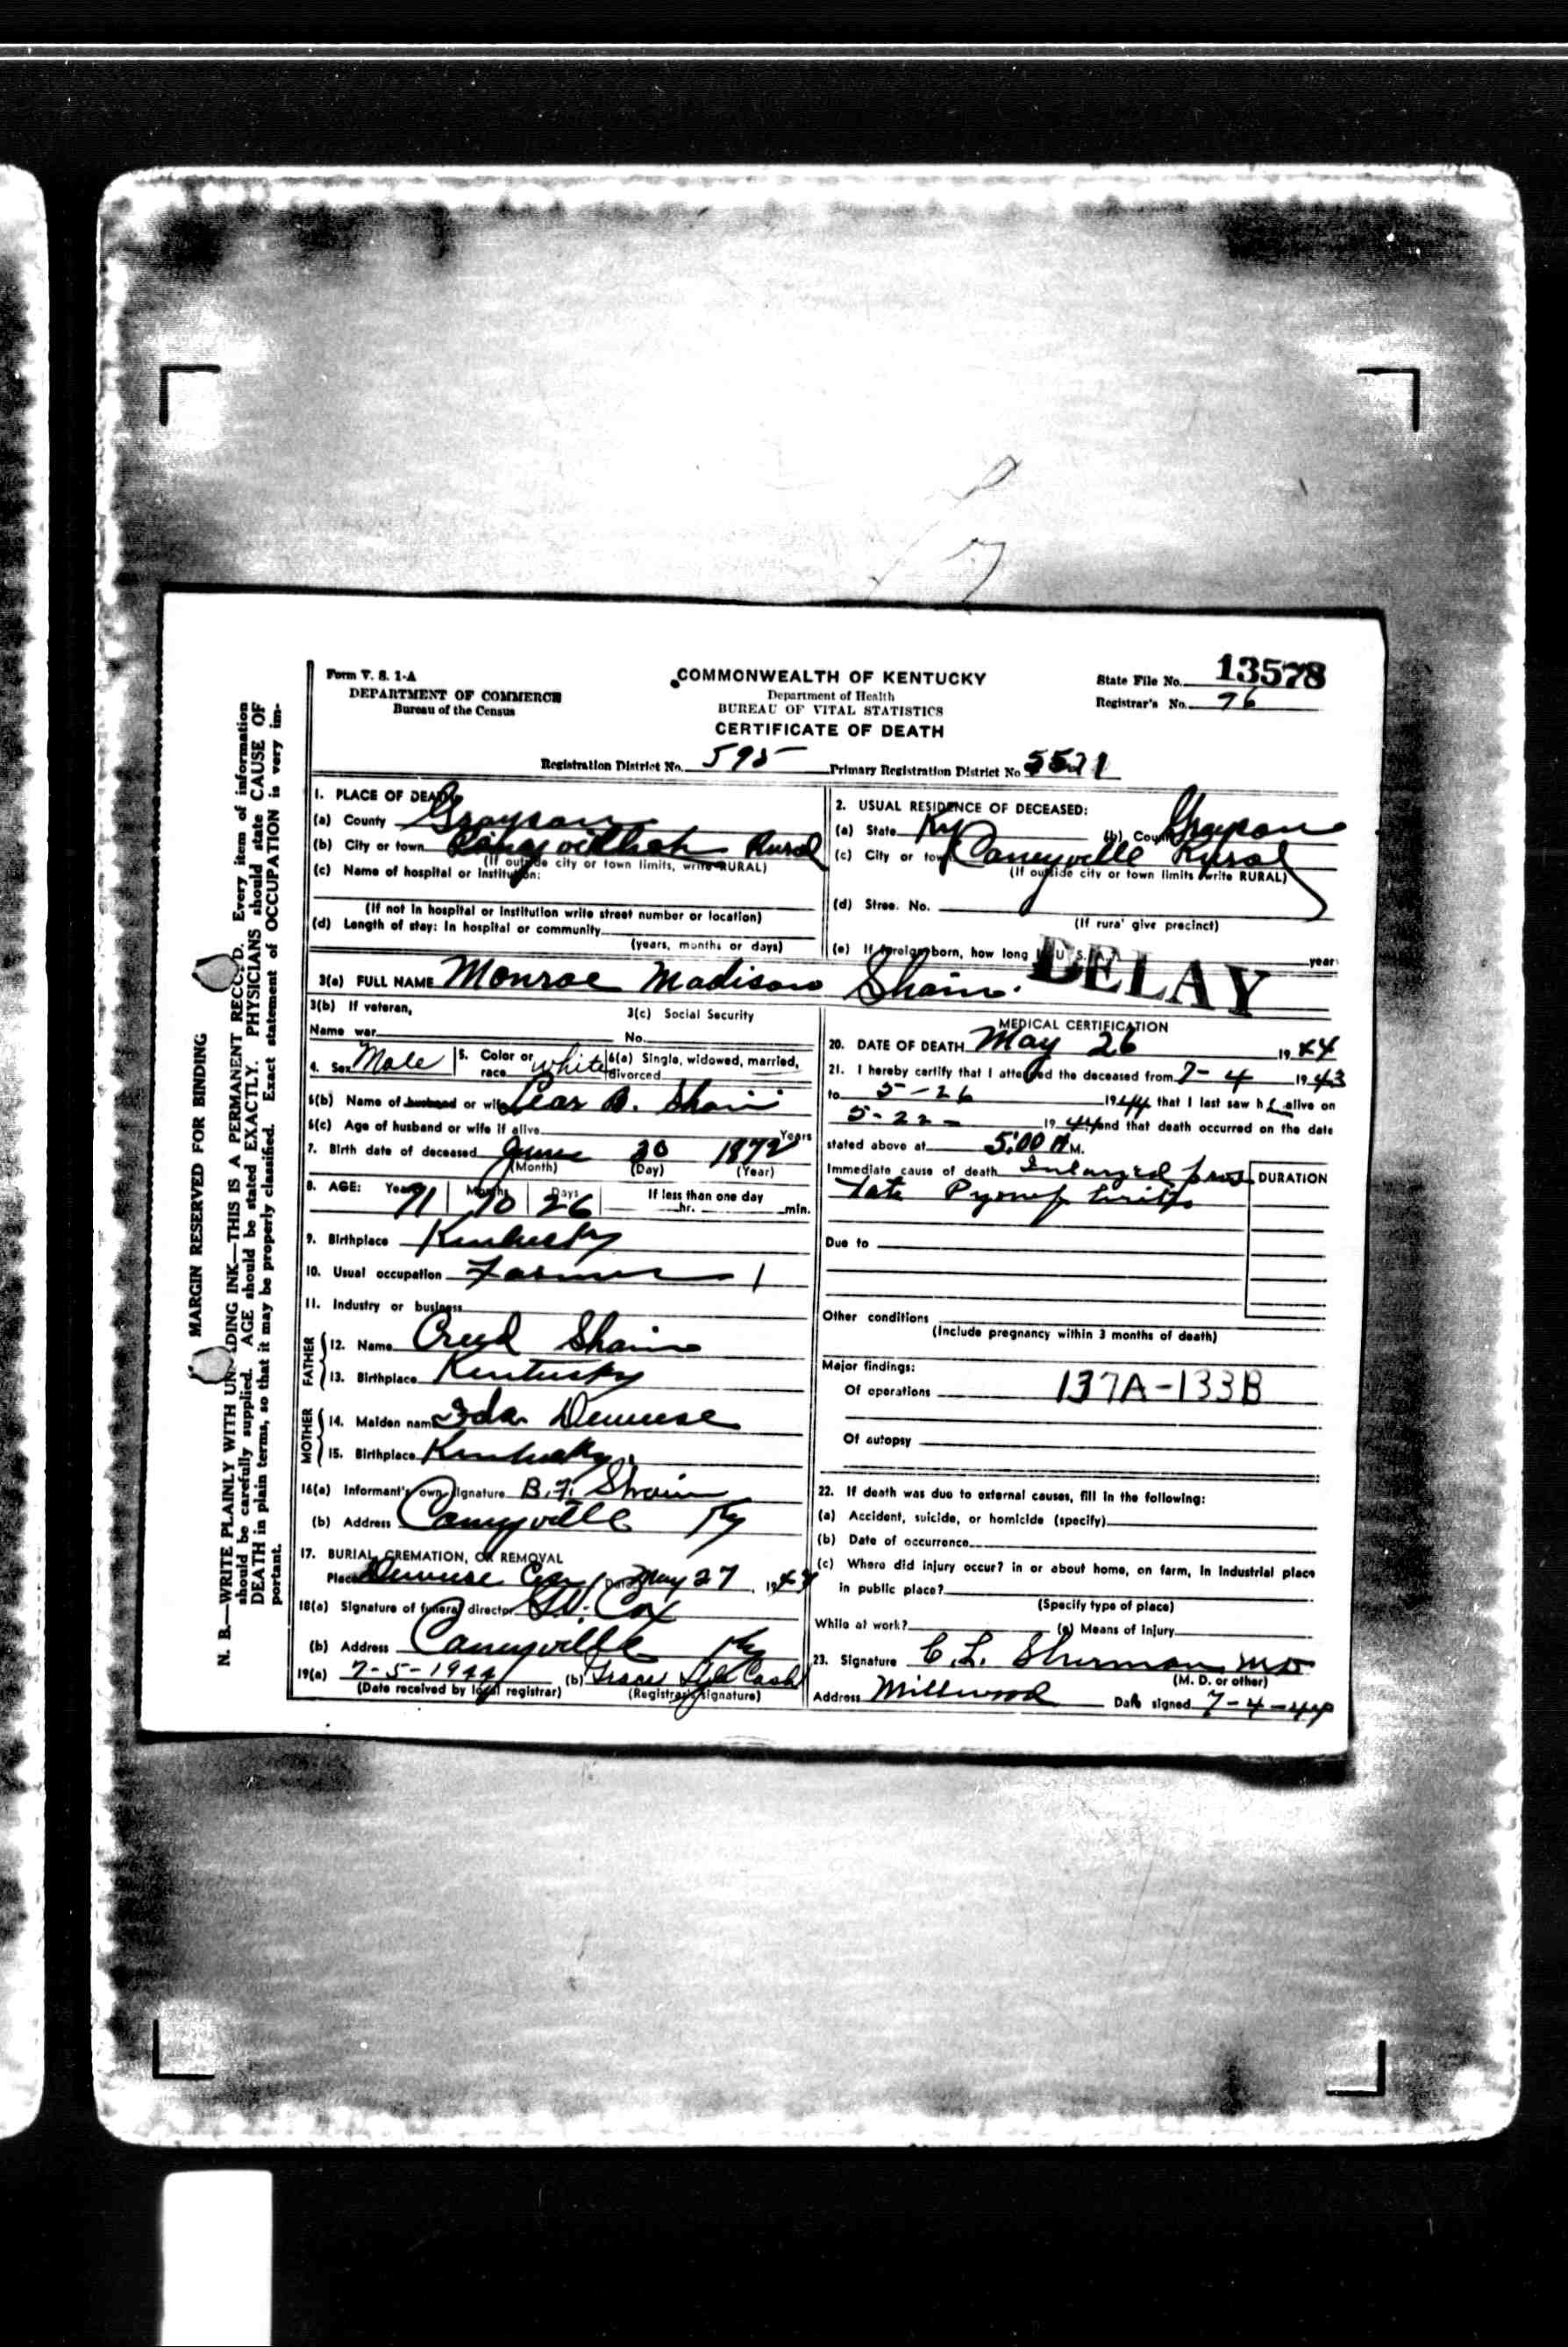 Form V. S. 1-A
DEPARTMENT OF COMMERCE
Bureau of the Census
COMMONWEALTH OF KENTUCKY
Department of Health
BUREAU OF VITAL STATISTICS
CERTIFICATE OF DEATH
State File No. 13578
Registrar's No. 76
Registration District No. 595 Primary Registration District No. 5571
MARGIN RESERVED FOR BINDING
N. B.—WRITE PLAINLY WITH UNFADING INK—THIS IS A PERMANENT RECORD. Every item of information
should be carefully supplied. AGE should be stated EXACTLY. PHYSICIANS should state CAUSE OF
DEATH in plain terms, so that it may be properly classified. Exact statement of OCCUPATION is very im-
portant.
1. PLACE OF DEATH
(a) County Grayson
(b) City or town Rural
(If outside city or town limits, write RURAL)
(c) Name of hospital or institution:
(If not in hospital or institution write street number or location)
(d) Length of stay: In hospital or community
(years, months or days)
2. USUAL RESIDENCE OF DECEASED:
(a) State Ky (b) County Grayson
(c) City or town Caneyville Rural
(If outside city or town limits write RURAL)
(d) Stree. No.
(If rura' give precinct)
(e) If foreign born, how long U. S. A. years
DELAY
3(a) FULL NAME Monroe Madison Shain.
3(b) If veteran,
Name war
3(c) Social Security
No.
4. Sex Male 5. Color or race white 6(a) Single, widowed, married, divorced
6(b) Name of husband or wife B. Shain
6(c) Age of husband or wife if alive Years
7. Birth date of deceased June 30 1872
(Month) (Day) (Year)
8. AGE: Years 71 Months 10 Days 26 If less than one day
hr. min.
9. Birthplace Kentucky
10. Usual occupation Farmer 1
11. Industry or business
FATHER
12. Name Creed Shain
13. Birthplace Kentucky
MOTHER
14. Maiden name Ida Deweese
15. Birthplace Kentucky
16(a) Informant's own signature B. F. Shain
(b) Address Caneyville Ky
17. BURIAL, CREMATION, OR REMOVAL
Place Deweese Cem Date May 27, 1944
18(a) Signature of funeral director Cox
(b) Address Caneyville Ky
19(a) 7-5-1944 (b)
(Date received by local registrar) (Registrar's signature)
MEDICAL CERTIFICATION
20. DATE OF DEATH May 26 1944
21. I hereby certify that I attended the deceased from 7-4 1943
to 5-26 1944 that I last saw h alive on
5-22- 1944 and that death occurred on the date
stated above at 5:00 A M.
Immediate cause of death Inlarged pros
tate
DURATION
Due to
Other conditions
(Include pregnancy within 3 months of death)
Major findings:
Of operations 137A-133B
Of autopsy
22. If death was due to external causes, fill in the following:
(a) Accident, suicide, or homicide (specify)
(b) Date of occurrence
(c) Where did injury occur? in or about home, on farm, in industrial place
in public place?
(Specify type of place)
While at work? (e) Means of Injury
23. Signature C. L. Sherman MD
(M. D. or other)
Address Millwood Date signed 7-4-44